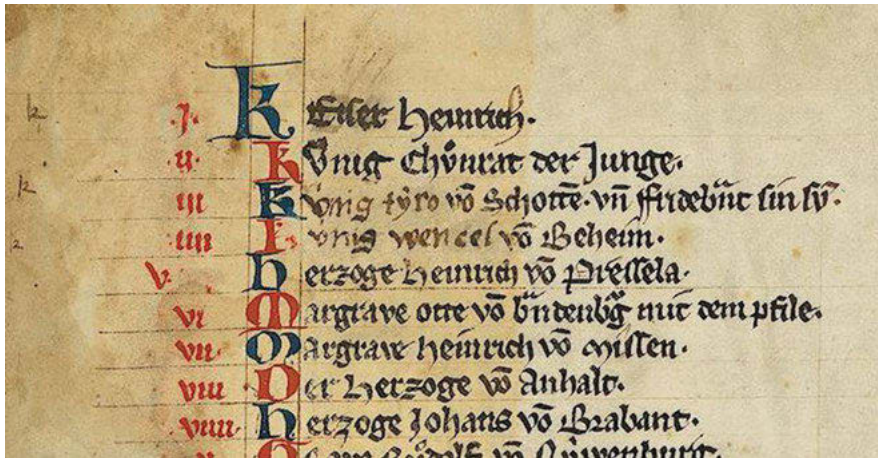 .j. Keiser Heinrich.
.ii. Kv́nig Chv̊nrat der Junge.
iii Kv́nig tyro vō Schottē. vn̄ fridebrāt sin sv̄.
iiii Kv́nig wencel vō Beheim.
v. Herzoge Heinrich vō Pressela.
vi Margrave otte vō brādenbg mit dem pfile.
vii. Margrave heinrich vō missen.
viii Der Herzoge vō Anhalt.
viiii. Herzoge Johans vō Brabant.